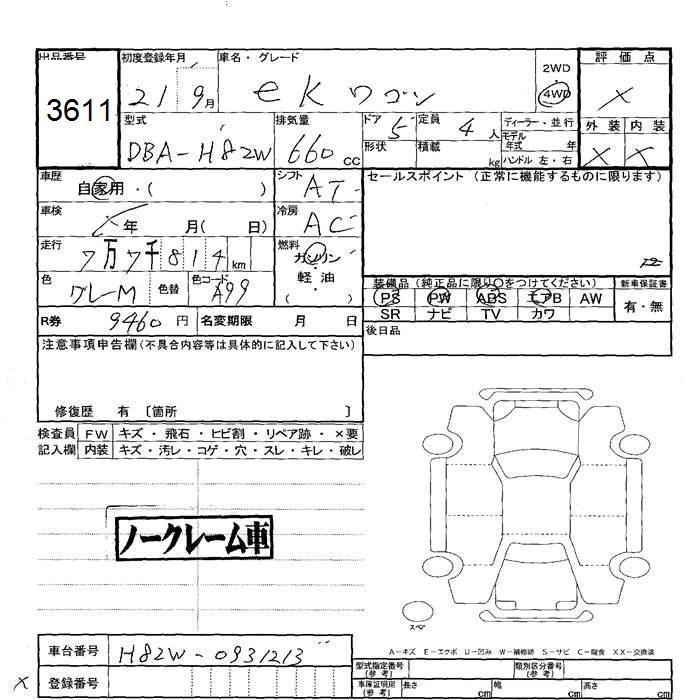 出品番号 初度登録年月 車名・グレード 2WD 評価点
3611 21 9月 eK ワゴン 4WD ×
型式 排気量 ドア 5 定員 4人 ディーラー・並行 外装 内装
モデル年式 年
DBA-H82W 660cc 形状 積載 kg ハンドル 左・右 × ×
車歴 自家用・( ) シフト AT セールスポイント (正常に機能するものに限ります)
車検 年 月( 日) 冷房 AC
走行 7万7千814km 燃料 ガソリン
色 グレーM 色替 色コード A99 軽・油 ( )
装備品 (純正品に限り○をつけてください) 新車保証書
PS PW ABS エアB AW 有・無
SR ナビ TV カワ
R券 9460円 名変期限 月 日
後日品
注意事項申告欄(不具合内容等は具体的に記入して下さい)
修復歴 有 [箇所 ]
検査員 FW キズ・飛石・ヒビ割・リペア跡・×要
記入欄 内装 キズ・汚レ・コゲ・穴・スレ・キレ・破レ
ノークレーム車
スペア
A-キズ E-エクボ U-凹み W-補修跡 S-サビ C-腐食 XX-交換済
車台番号 H82W-0931213
型式指定番号(参考) 類別区分番号(参考)
× 登録番号
車庫証明用(参考) 長さ cm 幅 cm 高さ cm